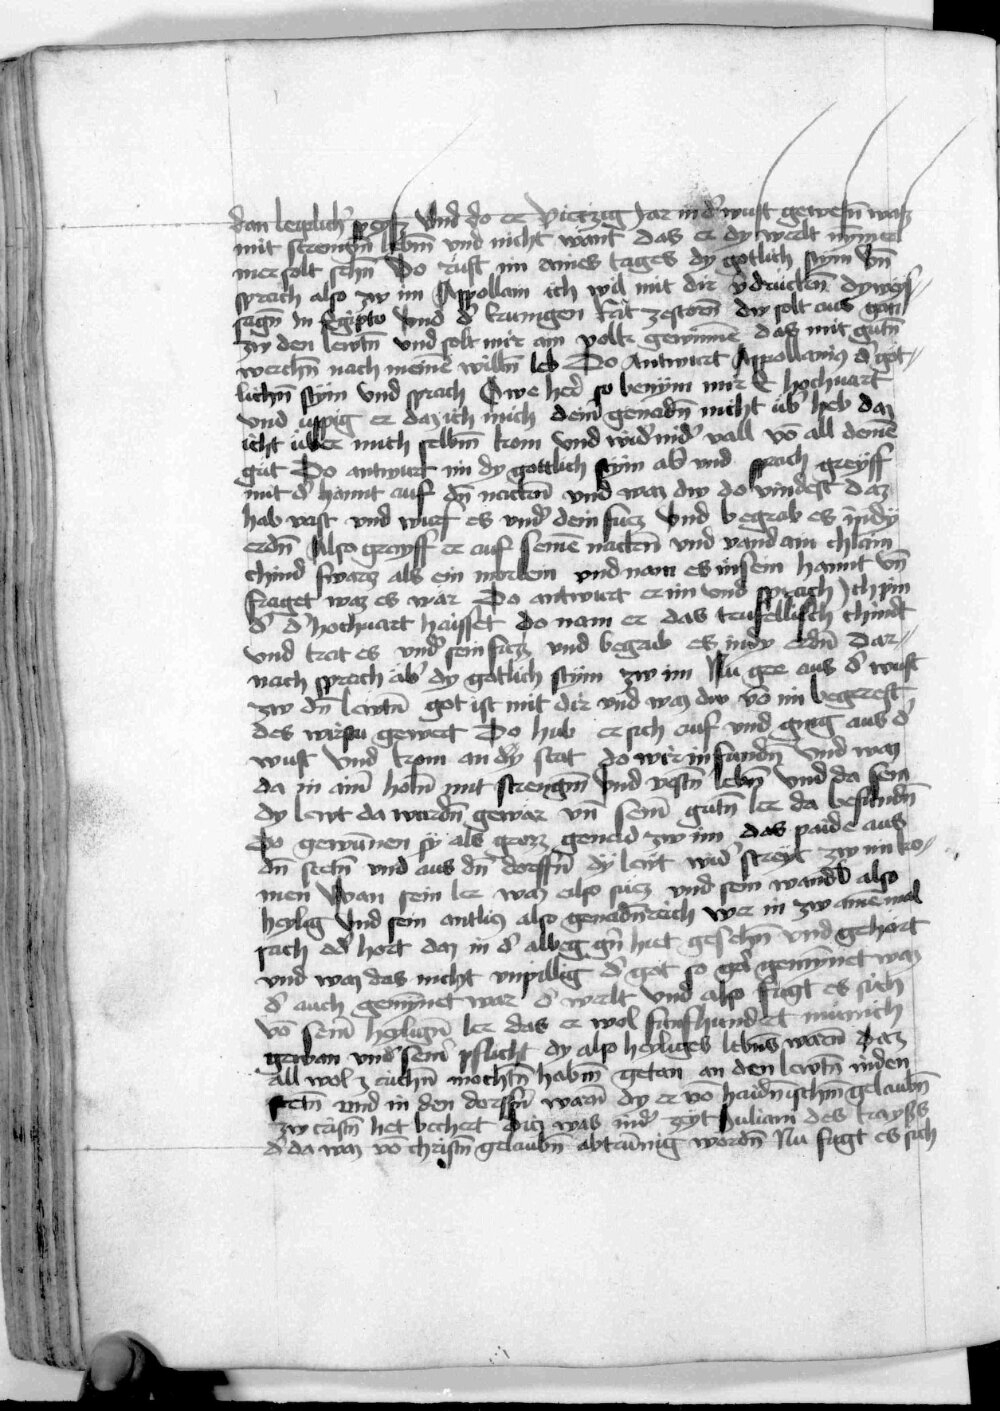 dan leiplich speys Und do er Viertzig Jar in d' wust gewesn waz
mit strengm lebm und nicht want das er dy werlt nymer
mer solt sehn Do ruft im aines tages dy gotlich stym vn̄
sprach also zw im Appollam ich wil mit dir vdruckn̄ dy weys-//
sagn̄ In Egipto Und d' kunigen rat zestorn̄ dw solt aus gan
zw den lewtn̄ und solt mir ain volk gewinnē das mit gutn̄
werchn̄ nach meinē willn̄ leb Do Antwurt Appollanius d' got-//
lichn̄ stym Und sprach Owe her' so benym mir d' hochvart
und uppig er daz ich mich deinr̄ genadn̄ nicht üb' heb daz
icht über mich selbm̄ kom Und wid' nid' vall vō all deinē
gut Do antwurt im dy gottlich stym ab' und sprach greyff
mit d' hannt auf dn̄ nackn̄ und waz dw do vindest daz
hab vast und wurf es und' dein fuez Und begrab es in dy
erdn̄ Also grayff er auf seinē nackn̄ und vand ain chlain
chind swarcz als ein morlein und nam es in sein hannt Vn̄
fraget waz es wār Do antwurt er im Und sprach Ich pin
d' d' hochvart haisset do nam er das teufellisch chindt
und trat es und' sein fuez und begrub es in dy erdn̄ Dar-//
nach sprach ab' dy gotlich stym zw im Nu gee aus d' wust
zw dn̄ lewtn̄ got ist mit dir und waz dw vō im begerest
des wirstu gewert Do hub er sich auf und ging aus d'
wust Und kom an dy stat do wir in fundn̄ Und waz
da in ainr̄ holn̄ mit strengm̄ Und vestn̄ lebn̄ Und da sein
dy lewt da wardn̄ gewar vn̄ seinr̄ gutn̄ ler da befundn̄
Do gewunnen sy als grozz genad zw im das paide aus
dn̄ stetn̄ und aus dn̄ dorffn̄ dy lewt wid' streyt zw im ko-//
men Wan sein ler waz also suez und sein wandl also
heylig Und sein antlicz also genadn̄reich wer in zw ainē mal
sach od' hort daz in d' albeg gn̄ hiet gesehn̄ Und gehort
und waz das nicht unpillig d' got so gar̄ gemynet waz
d' auch gemynet war d' werlt Und also fugt es sich
vō seinr̄ heylign̄ ler das er wol funfhundert munich
gewan und' seinr̄ pflicht dy also heyliges lebn̄s warn̄ daz
all wol zaichn̄ mochtn̄ habm̄ getan an den lewtn̄ in den
stetn̄ Und in den dorffn̄ warn̄ dy er vō haidn̄ischm̄ gelaubn̄
zw cristn̄ het bechert Dicz was in d' zyt Juliani des kaysers
d' da waz vō christn̄ gelaubn̄ abtrunig wordn̄ Nu fugt es sich